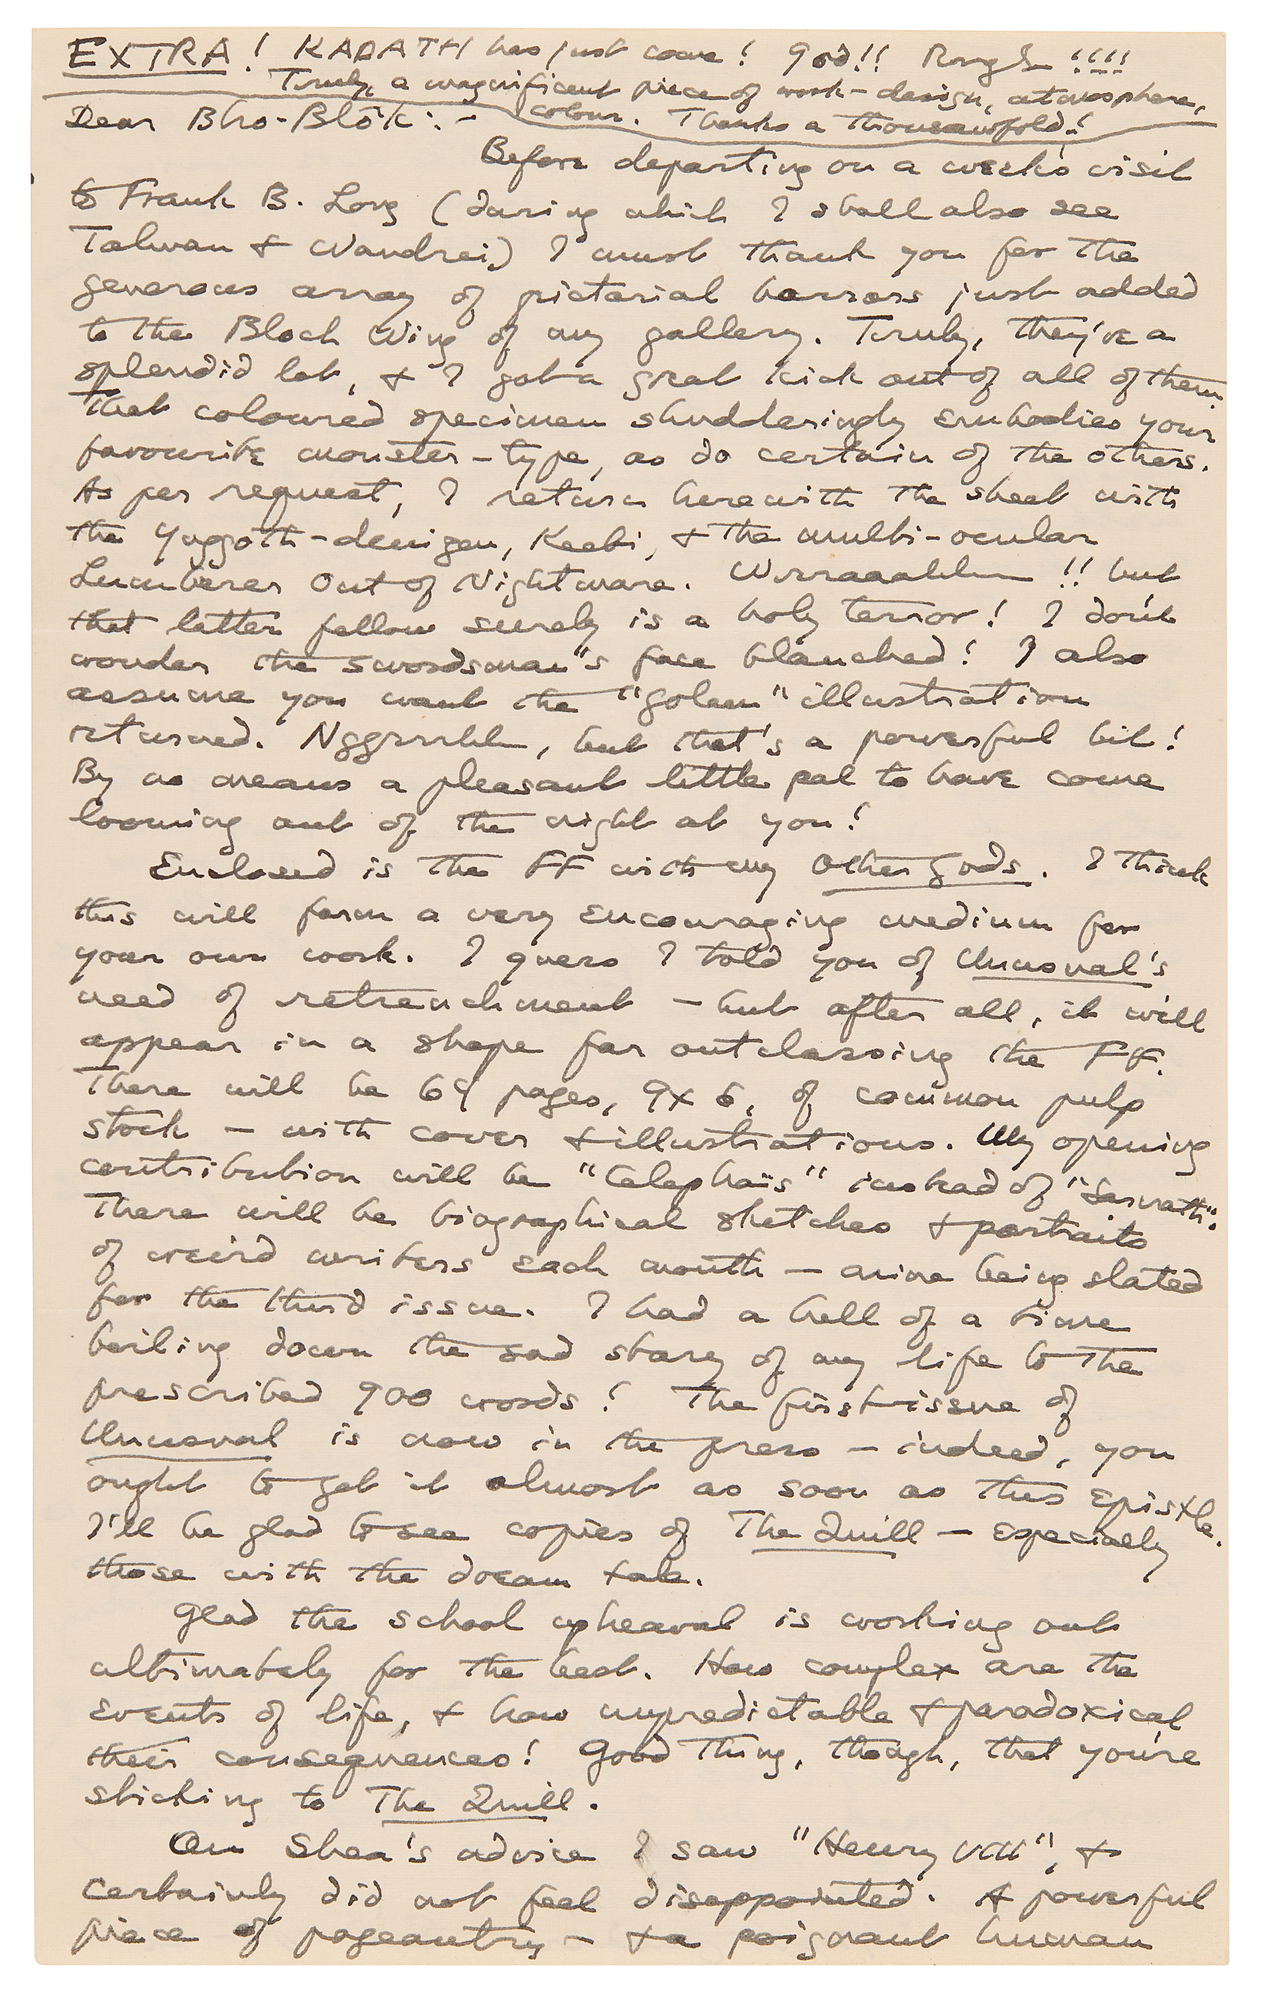 EXTRA! KADATH has just come! God!! Rrrgh !!!!
Truly, a magnificent piece of work – design, atmosphere,
colour. Thanks a thousandfold!
Dear Bho-Blôk:–
Before departing on a week's visit
to Frank B. Long (during which I shall also see
Talman & Wandrei) I must thank you for the
generous array of pictorial horrors just added
to the Bloch Wing of my gallery. Truly, they're a
splendid lot, & I got a great kick out of all of them.
That coloured specimen shudderingly embodies your
favourite monster-type, as do certain of the others.
As per request, I return herewith the sheet with
the Yuggoth-denizen, Keebi, & the multi-ocular
Lumberer Out of Nightmare. !! but
that latter fellow surely is a holy terror! I don't
wonder the swordsman's face blanched! I also
assume you want the "golem" illustration
returned. Nggrrrhh, but that's a powerful bit!
By no means a pleasant little pal to have come
looming out of the night at you!
Enclosed is the FF with my Other Gods. I think
this will form a very encouraging medium for
your own work. I guess I told you of Unusual's
need of retrenchment – but after all, it will
appear in a shape far outclassing the FF.
There will be 64 pages, 9x6, of common pulp
stock – with cover & illustrations. My opening
contribution will be "Celephaïs" instead of "Sarnath".
There will be biographical sketches & portraits
of weird writers each month – mine being slated
for the third issue. I had a hell of a time
boiling down the sad story of my life to the
prescribed 900 words! The first issue of
Unusual is now in the press – indeed, you
ought to get it almost as soon as this epistle.
I'll be glad to see copies of The Quill – especially
those with the dream tale.
Glad the school upheaval is working out
ultimately for the best. How complex are the
events of life, & how unpredictable & paradoxical
their consequences! Good thing, though, that you're
sticking to The Quill.
On Shea's advice I saw "Henry VIII", &
certainly did not feel disappointed. A powerful
piece of pageantry – & a poignant human